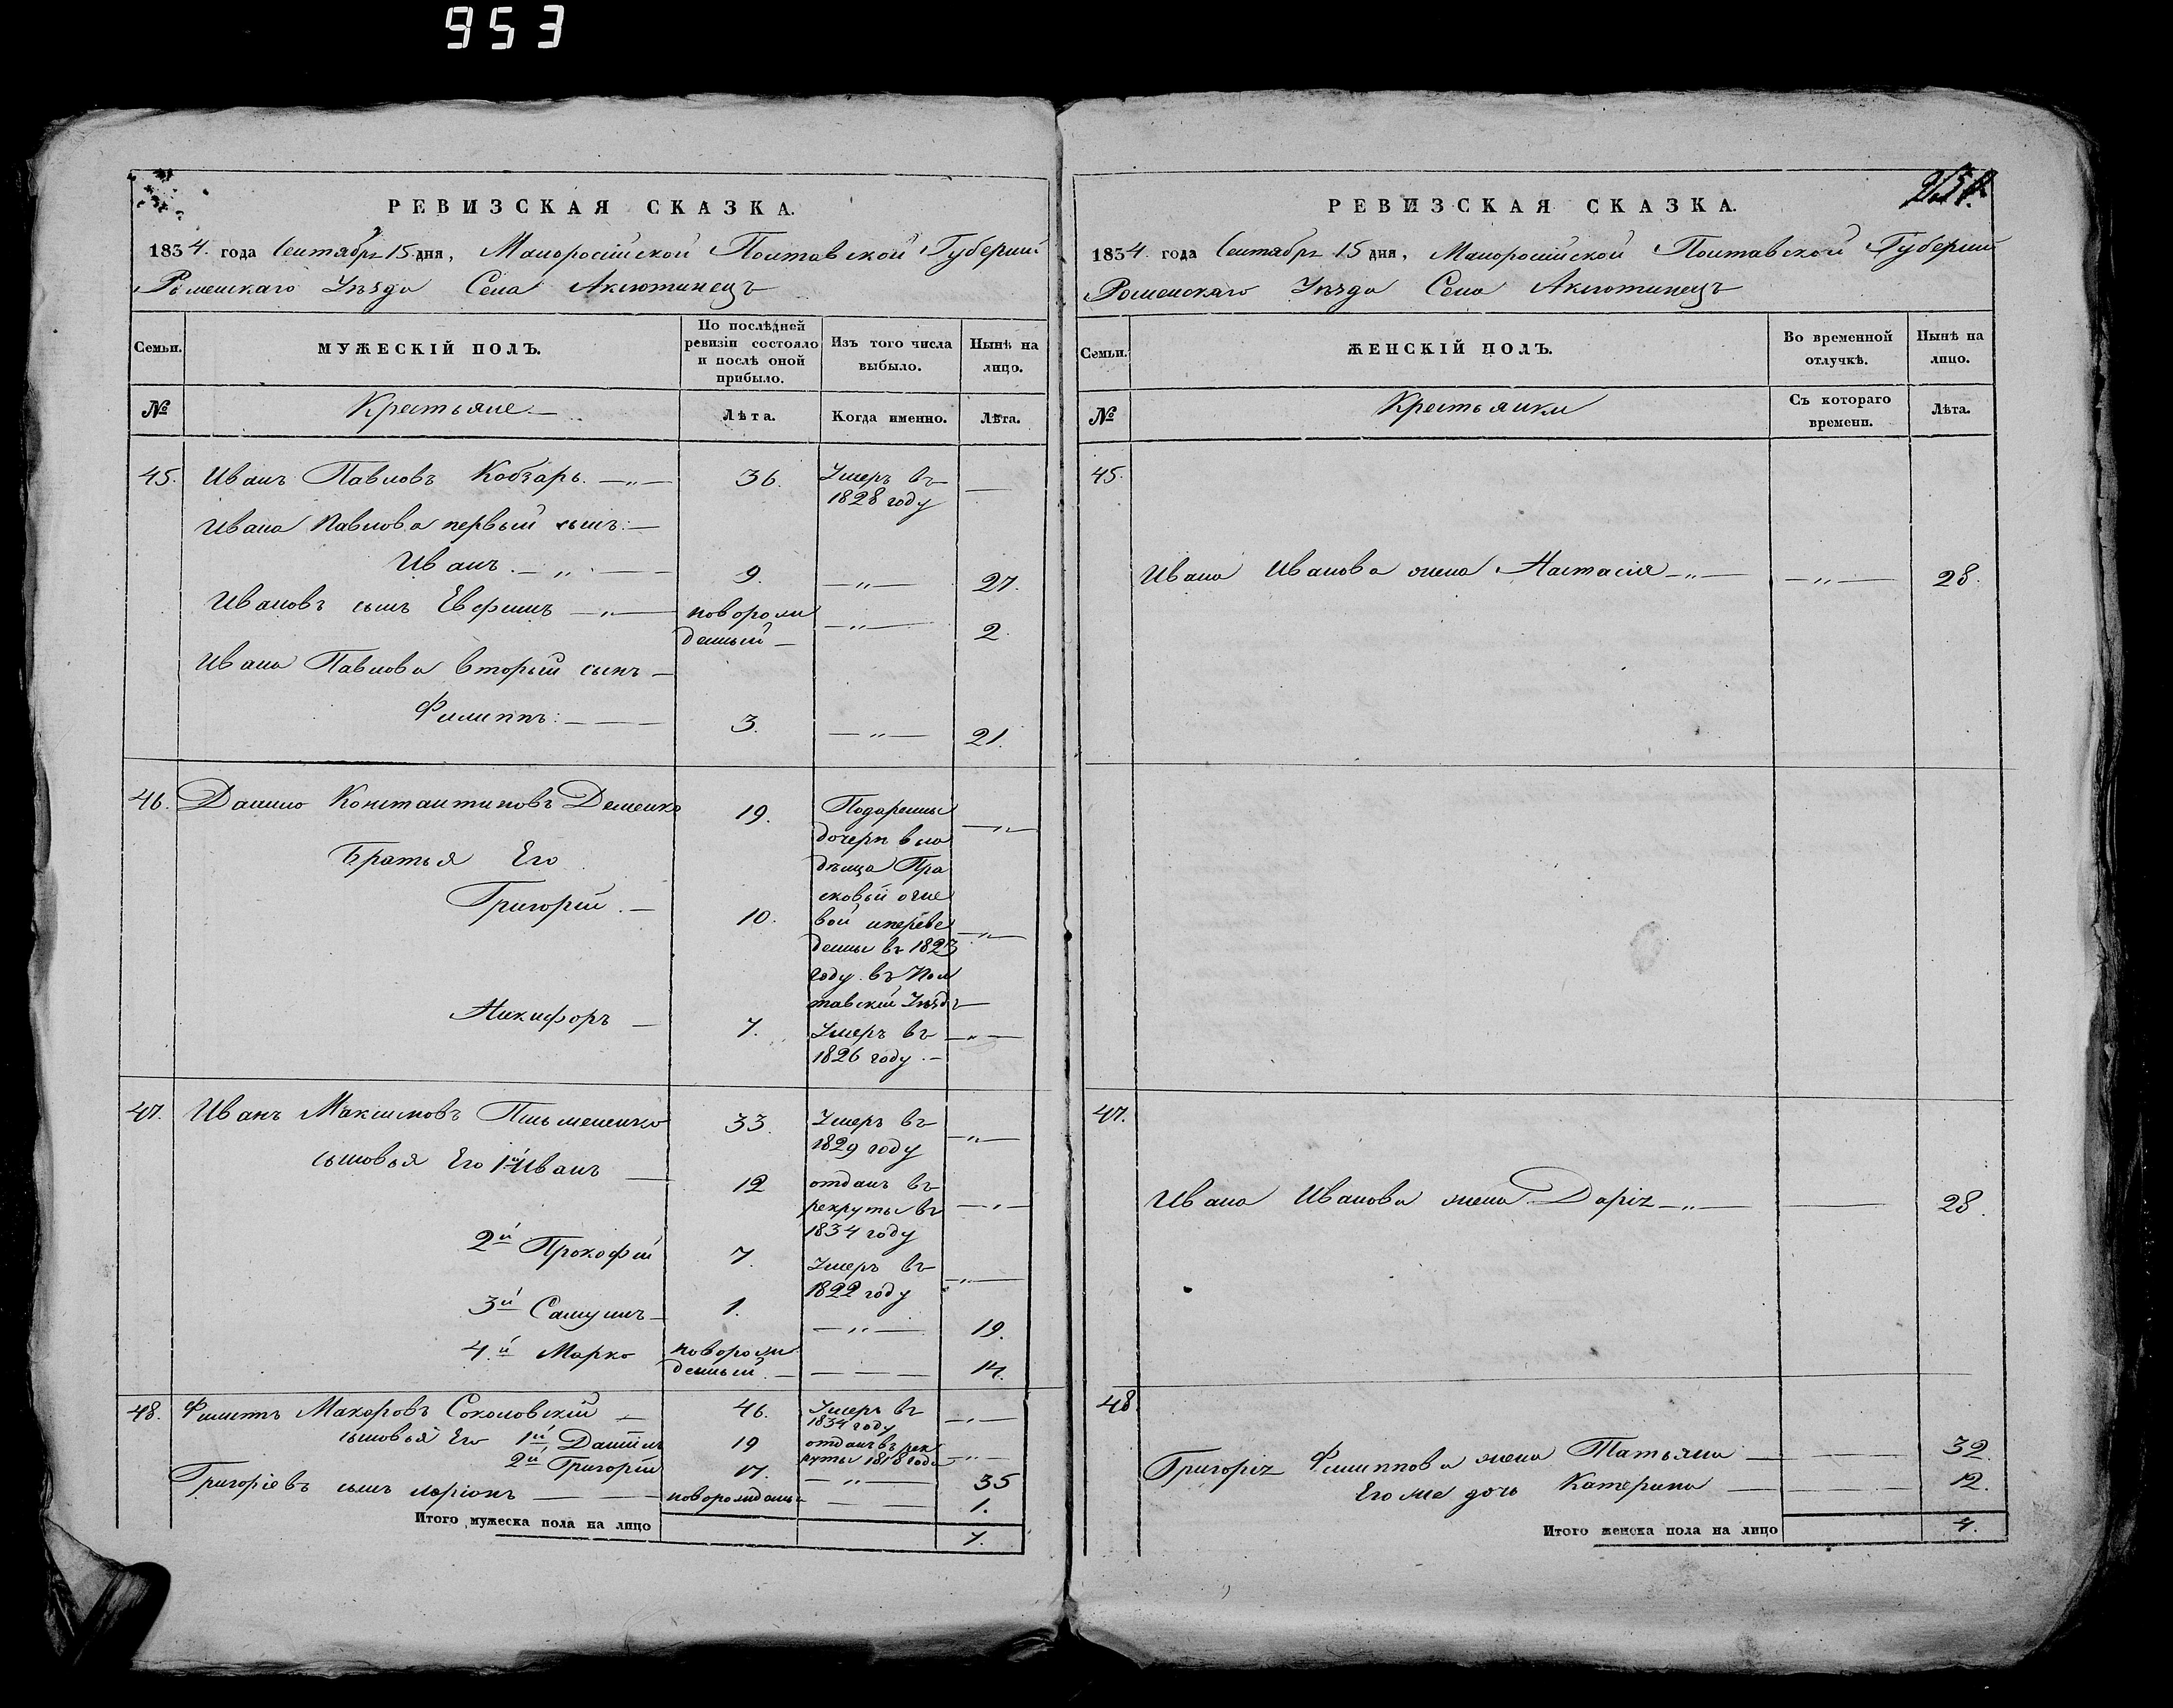 953
РЕВИЗСКАЯ СКАЗКА.
1834. года Сентября 15 дня, Малоросійской Полтавской Губерніи
Роменскаго Уѣзда Села Аксютинецъ
Семьи.
МУЖЕСКІЙ ПОЛЪ.
По послѣдней ревизіи состояло и послѣ оной прибыло.
Изъ того числа выбыло.
Нынѣ на лицо.
№
Крестьяне
Лѣта.
Когда именно.
Лѣта.
45. Иванъ Павловъ Кобзарь 36. Умеръ въ
1828 году
Ивана Павлова первый сынъ:
Иванъ 9. 27.
Ивановъ сынъ Евфимъ новорож
денный 2.
Ивана Павлова вторый сынъ
Филиппъ: 3. 21.
46. Данило Константиновъ Деменко 19. Подарены
дочери вла
Братья Его
дѣлца Пра
сковьи
Григорій 10. вой и переве
дены въ 1823
году въ Пол
тавскій Уѣздъ
Никифоръ 7. Умеръ въ
1826 году
47. Иванъ Максимовъ Письмененко 33. Умеръ въ
1829 году
сыновья Его 1й Иванъ 12 отданъ въ
рекруты въ
1834 году
2й Прокофій 7. Умеръ въ
1822 году
3й Самуилъ 1. 19.
4й Марко новорож
денный 14.
48. Филиппъ Макаровъ Соколовскій 46. Умеръ въ
1834 году
сыновья Его 1й Даніилъ 19 отданъ въ рек
руты 1818 года
2й Григорій 17. 35
Григоріевъ сынъ Ларіонъ новорожденный 1.
Итого мужеска пола на лицо 7.
РЕВИЗСКАЯ СКАЗКА.
1834. года Сентября 15 дня, Малоросійской Полтавской Губерніи
Роменскаго Уѣзда Села Аксютинецъ
Семьи.
ЖЕНСКІЙ ПОЛЪ.
Во временной отлучкѣ.
Нынѣ на лицо.
№
Крестьянки
Съ котораго времени.
Лѣта.
45.
Ивана Иванова жена Настасія 28.
47.
Ивана Иванова жена Дарія 28.
48
Григорія Филиппова жена Татьяна 32.
Его же дочь Катерина 12.
Итого женска пола на лицо 4.